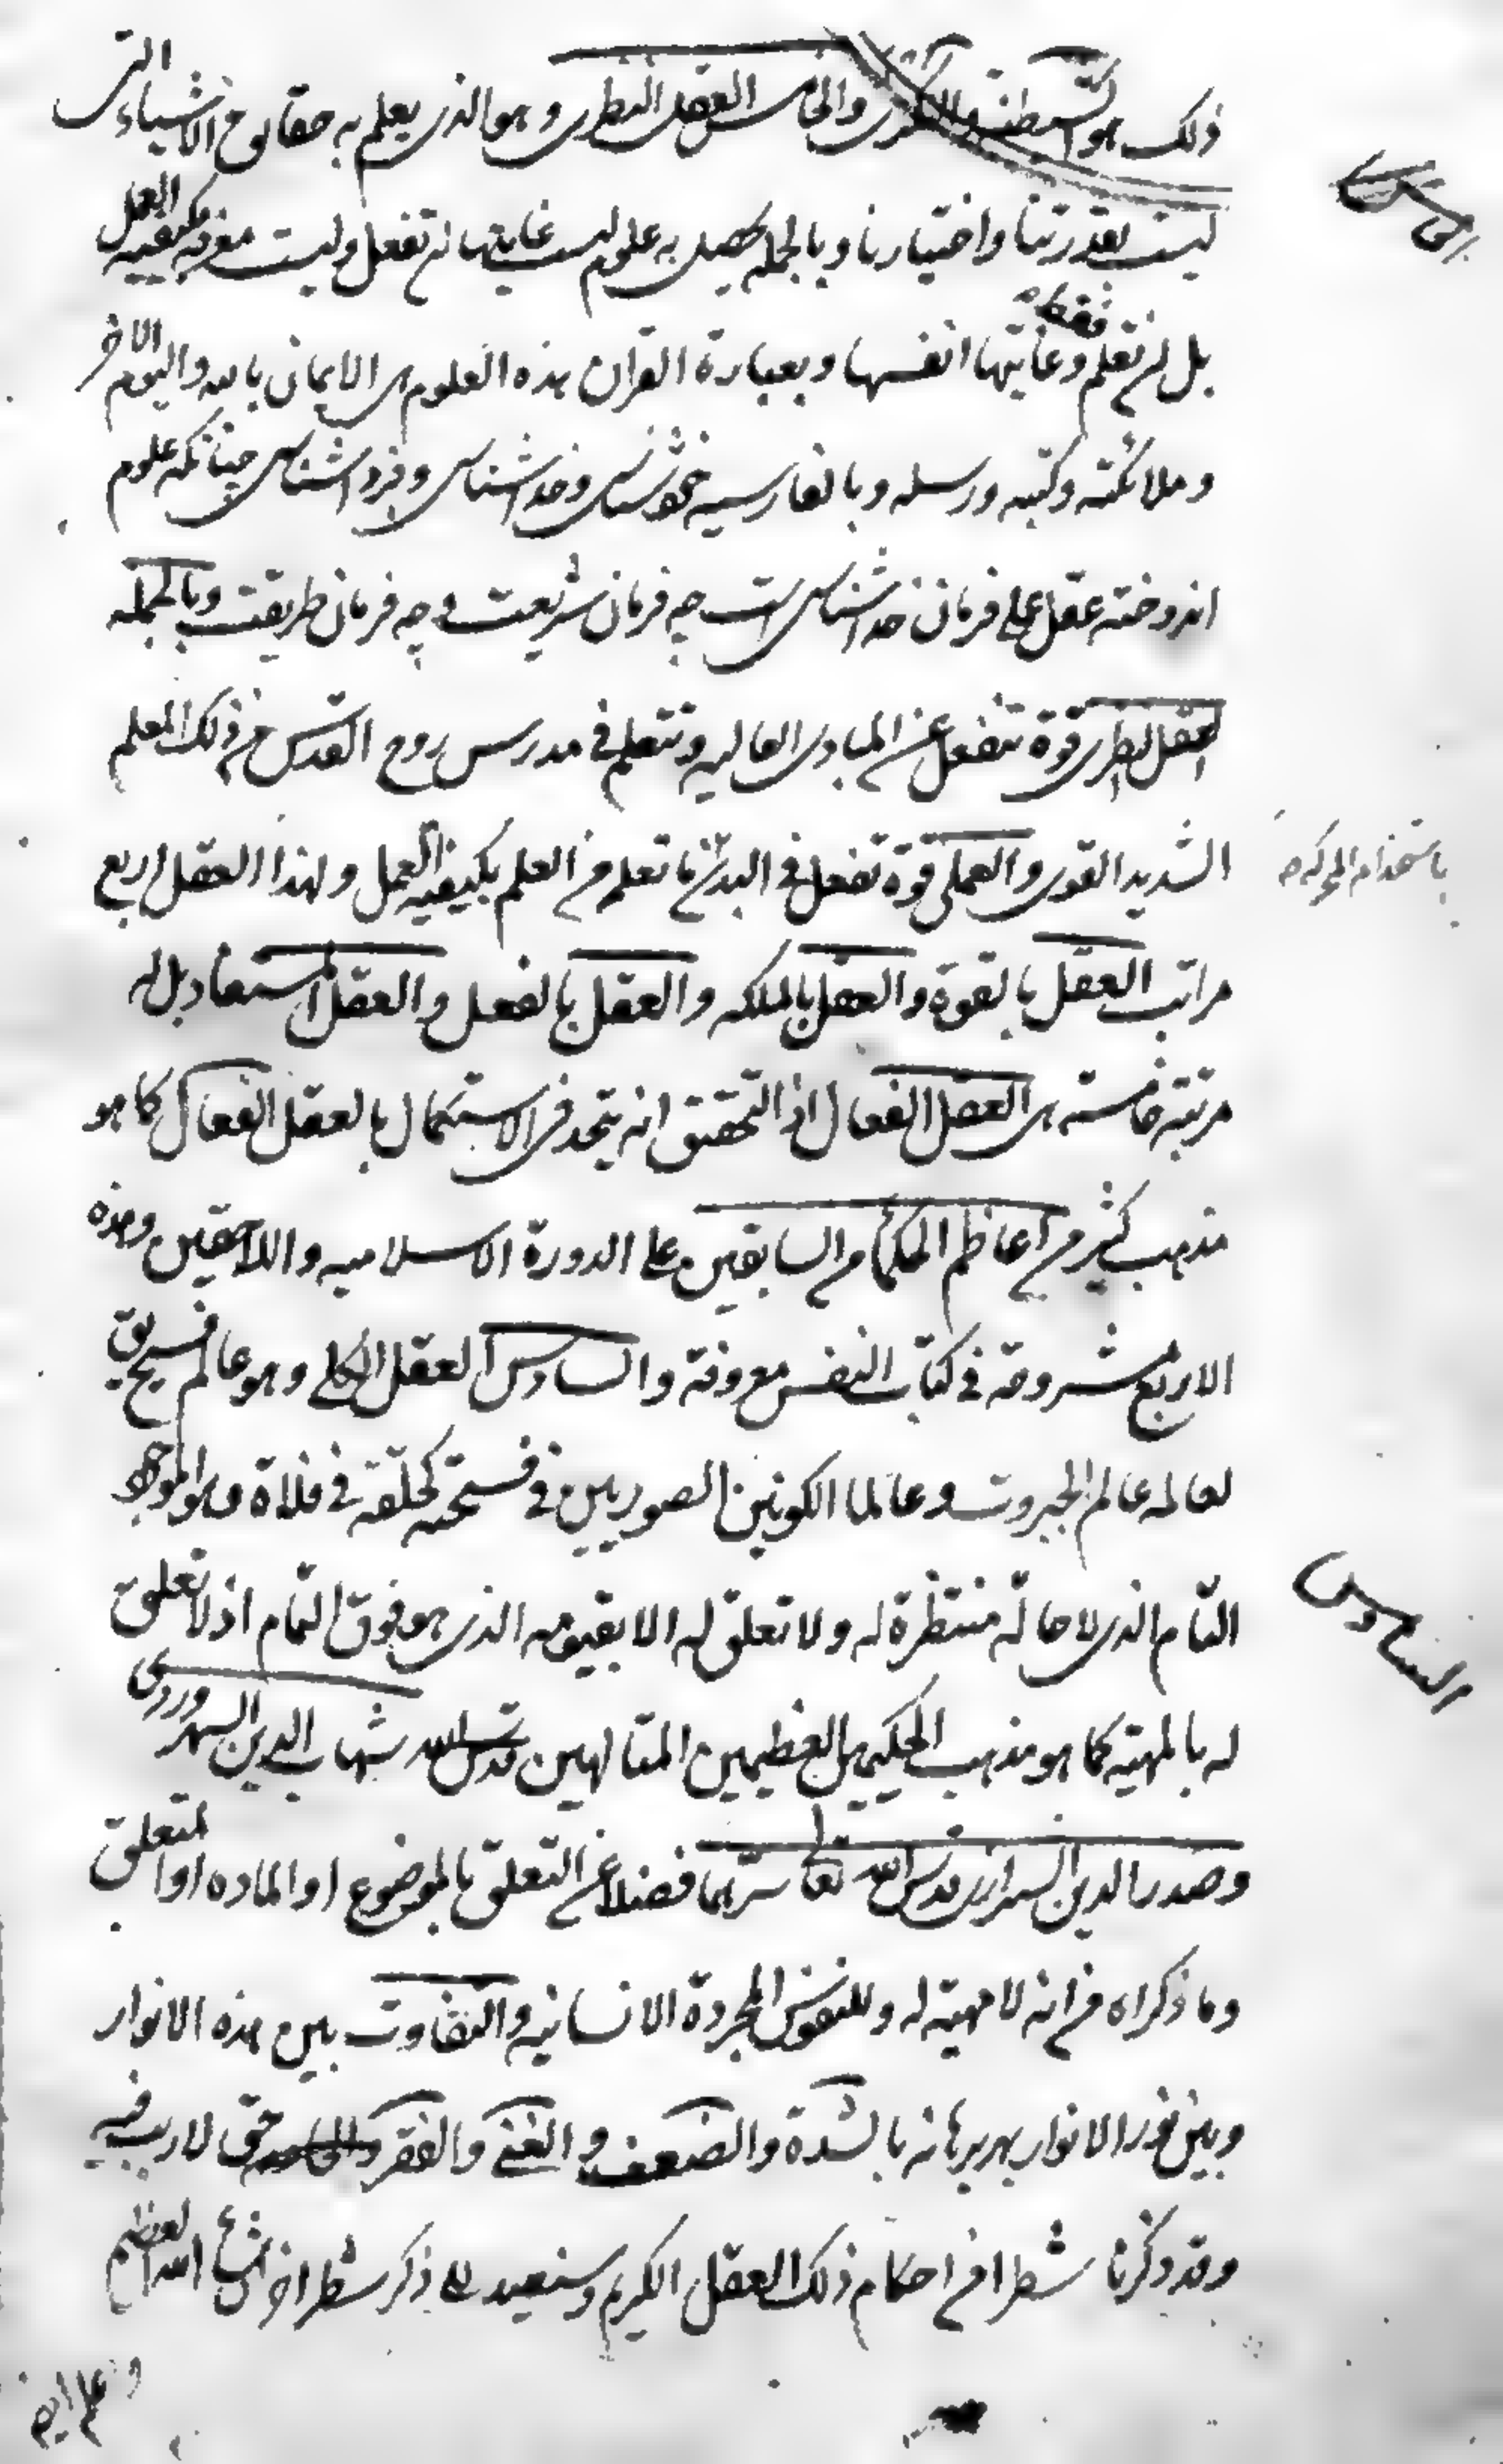 ذلک هو الشیطنة والنکری والخامس العقل النظری وهو الذی یعلم به حقایق الاشیاء التی
الخامس
لیست بقدرتنا واختیارنا وبالجمله یحصل به علوم لیست غایتها ان تفعل ولیست معرفة کیفیه العمل
بل ان تعلم فقط وغایتها انفسها وبعبارة القران هذه العلوم هی الایمان بالله والیوم الاخر
وملائکته وکتبه ورسله وبالفارسیه خودشناسی وخداشناسی وفرداشناسی چنانکه علوم
اندوخته عقل عملی فرمان خداشناسی است چه فرمان شریعت و چه فرمان طریقت وبالجمله
العقل النظری قوة تنفعل عن المبادی العالیه وتتعلم فی مدرس روح القدس من ذلک المعلم
الشدید القوی والعملی قوة تفعل فی البدن ما تعلم من العلم بکیفیه العمل ولهذا العقل اربع
باستخدام المحرکه
مراتب العقل بالقوة والعقل بالملکه والعقل بالفعل والعقل المستفاد بل له
مرتبة خامسته هی العقل الفعال اذ التحقیق انه یتحد فی الاستکمال بالعقل الفعال کما هو
مذهب کثیر من اعاظم الحکماء من السابقین علی الدورة الاسلامیه واللاحقین وهذه
الاربع مشروحة فی کتاب النفس معروفة والسادس العقل الکلی وهو عالم فسیح یق
لعالمه عالم الجبروت وعالما الکونین الصوریین فی فسحته کحلقة فی فلاة وهو الموجود
السادس
التام الذی لا حالة منتظرة له ولا تعلق له الا بقیومه الذی هو فوق التمام اذ لا تعلق
له بالمهیته کما هو مذهب الحکیمین العظیمین المتالهین شهاب الدین السهروردی
وصدر الدین الشیرازی قدس الله تعالی سرهما فضلا عن التعلق بالموضوع او الماده او المتعلق
وما ذکراه من انه لا مهیته له وللنفوس المجردة الانسانیه والتفاوت بین هذه الانوار
وبین نور الانوار بهر برهانه بالشدة والضعف و الغنی والفقر حق لا ریب فیه
وقد ذکرنا شطرا من احکام ذلک العقل الکریم وسنعید الی ذکر شطر اخر انشاء الله العظیم